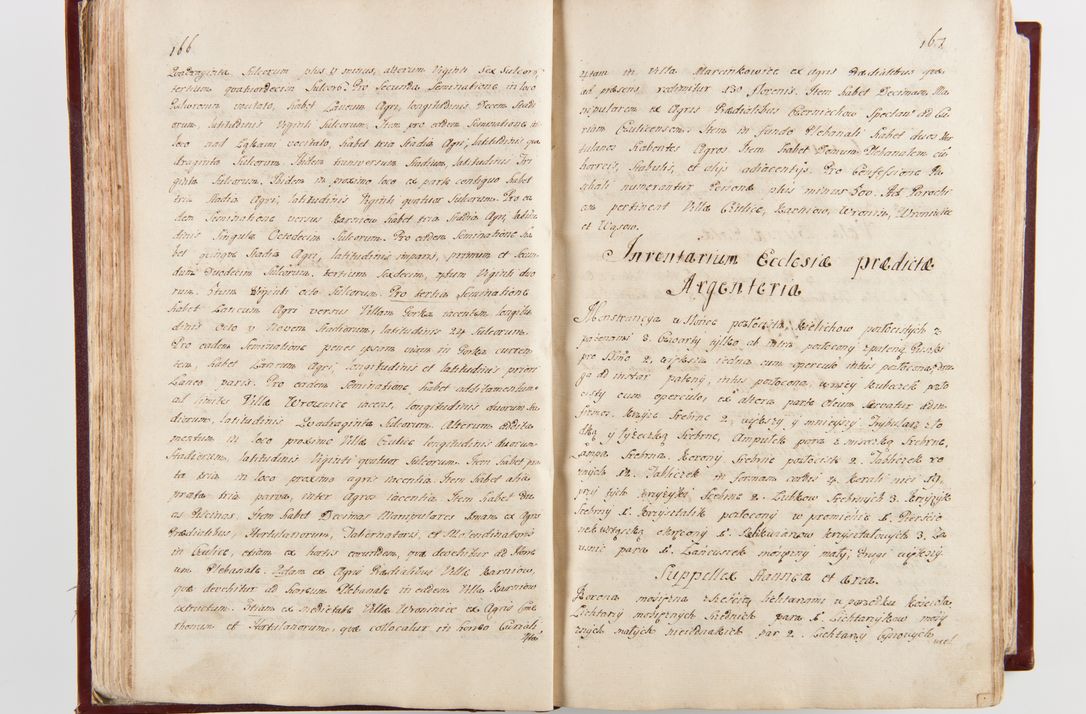 166
Quadraginta Sulcorum plus v minus, alterum Viginti Sex Sulcorum
tertium quatuordecim Sulcorum. Pro Secunda Seminatione in loco
vocitato, habet Laneum Agri, longitudinis Decem Stadi
orum, latitudinis Viginti Sulcorum. Item pro eadem Seminatione in
loco nad vocitato, habet tria Stadia Agri, latitudinis qua
draginta Sulcorum. Ibidem transversum Stadium latitudinis Tri
ginta Sulcorum. Ibidem in proximo loco ex parte contiguo habet
tria Stadia Agri, latitudinis Viginti quatuor Sulcorum. Pro ea
dem Seminatione versus Karniow habet tria Stadia Agri, latitu
dinis Singula Octodecim Sulcorum. Pro eadem Seminatione ha
bet quinque Stadia Agri, latitudinis imparis, primum et Secun
dum Duodecim Sulcorum, tertium Sexdecim, 4tum Viginti duo
rum, 5tum Viginti octo Sulcorum. Pro tertia Seminatione
habet Laneum Agri versus Villam Gorka iacentem, longitu
dinis Octo v Novem Stadiorum, latitudinis 24 Sulcorum.
Pro eadem Seminatione penes ipsam viam in Gorka curren
tem, habet Laneum Agri, longitudinis et latitudinis priori
Laneo paris. Pro eadem Seminatione habet additamentum
ad limites Villæ Wrozenice iacens, longitudinis duorum Sta
diorum, latitudinis Quadraginta Sulcorum. Alterum addita
mentum in loco proximo Villæ Czulice longitudinis duorum
Stadiorum, latitudinis Viginti quatuor Sulcorum. Item habet pra
ta tria in loco proximo agris iacentia. Item habet alia
prata tria parva, inter Agros iacentia. Item habet Du
as Piscinas. Item habet Decimas Manipulares 1mam ex Agris
Prædialibus, Hortulanorum, Tabernatoris, et Molendinatoris
in Czulice, etiam ex hortis eorundem, quæ devehitur ad Horre
um Plebanale. 2dam ex Agris Prædialibus Villæ Karniow,
quæ devehitur ad horreum Plebanale in eadem Villa Karniow
extructum. 3tiam ex medietate Villæ Wroninice ex Agris Cme
thonum et Hortulanorum, quæ collocatur in horreo Curiali.
4tam
167
4tam in Villa Marcinkowice ex agris Prædialibus quæ
ad præsens redimitur 130 florenis. Item habet Decimam Ma
nipularem ex Agris Prædialibus Czerniechow Spectan: ad Cu
riam Czulicensem. Item in fundo Plebanali habet duos Hor
tulanos habentes Agros. Item habet Domum Plebanalem cum
horreis, stabulis, et alijs adiacentijs. Pro Confessione Pa
schali numerantur Personæ plus minus 300. Ad Parochi
am pertinent Villæ Czulice, Karniow, Wronin, Wroninice
et Wąsow.
Inventarium Ecclesiæ prædictæ
Argenteria
Monstrancya w słońce pozłocista, kielichow pozłocistych z
patenami 3. Czwarty tylko ab intra pozłocony z pateną. Puszki
pro SSmo 2, większa iedna cum operculo intus pozłocona, dru
ga ad instar pateny, intus pozłocona, w niey kubaczek pozło
cisty cum operculo, ex altera parte Oleum servatur Infir
mor. Krzyże Srebrne 2, większy y mnieyszy. Trybularz z ło
dką y łyżeczką Srebrne, Ampułek para z miseczką Srebrne,
Lampa Srebrna. Korony Srebrne pozłociste 2. Tabliczek ro
żnych 12. Tabliczek in formam cordis 4. Korali nici
przy tych krzyżyki Srebrne 2. Krzyżyk
Srebrny 1. Krzyształik pozłocony w promienie 1. Pierście
nek krzyształowych 3.
para 1. Łancuszek mosiężny mały, drugi większy.
Suppellex stannea et ærea.
Korona mosiężna z lichtarzami w pośrodku kościoła.
Lichtarzy mosiężnych Srednich para 1. Lichtarzykow mosię
żnych małych niejednakich par 2. Lichtarzy Cynowych